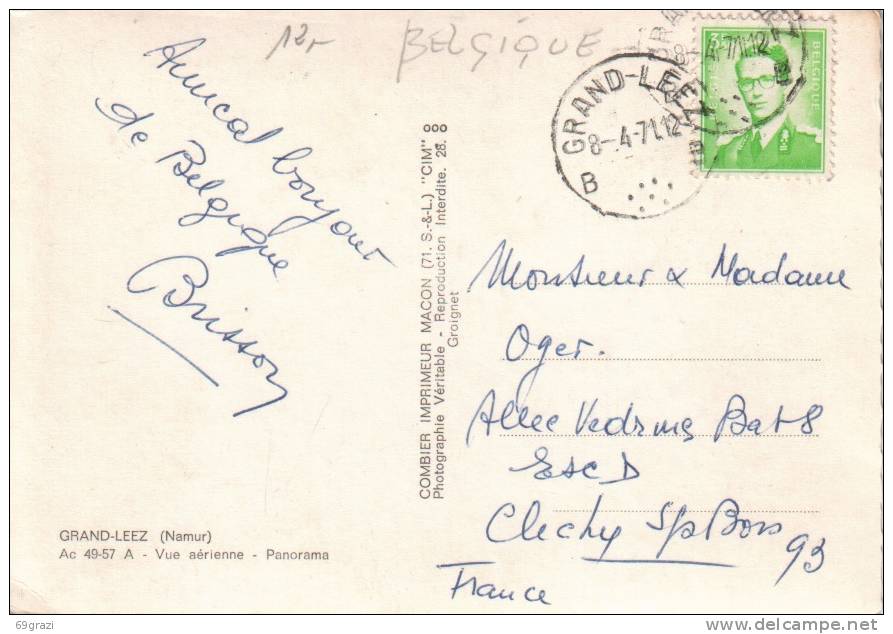 12,-
BELGIQUE
Amical bonjour
de Belgique
Brisson
GRAND-LEEZ (Namur)
Ac 49-57 A - Vue aérienne - Panorama
COMBIER IMPRIMEUR MACON (71. S.-&-L.) "CIM"
Photographie Véritable - Reproduction Interdite. 28.
Groignet
GRAND-LEEZ
8-4-71.12
B
GRAND-LEEZ
8-4-71.12
B
BELGIQUE
Monsieur & Madame
Oger.
Allee Vedrines Bat 8
Esc D
Clichy S/s Bois 93
France
69grazi
www.delcampe.net